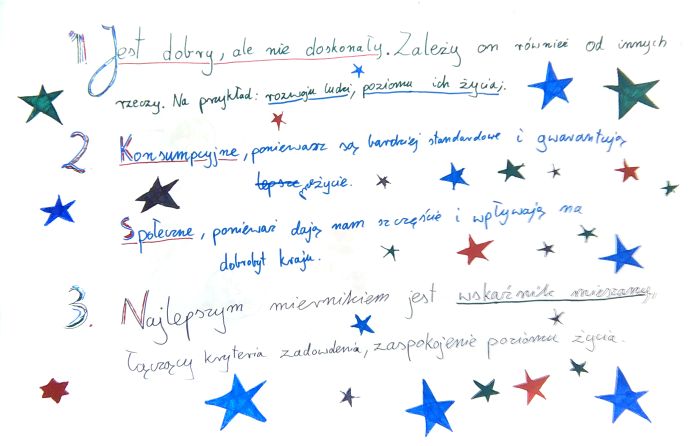 1. Jest dobry, ale nie doskonały. Zależy on również od innych
rzeczy. Na przykład: rozwoju ludzi, poziomu ich życia.
2 Konsumpcyjne, ponieważ są bardziej standardowe i gwarantują
lepsze życie.
Społeczne, ponieważ dają nam szczęście i wpływają na
dobrobyt kraju.
3. Najlepszym miernikiem jest wskaźnik mieszany,
łączący kryteria zadowolenia, zaspokojenie poziomu życia.